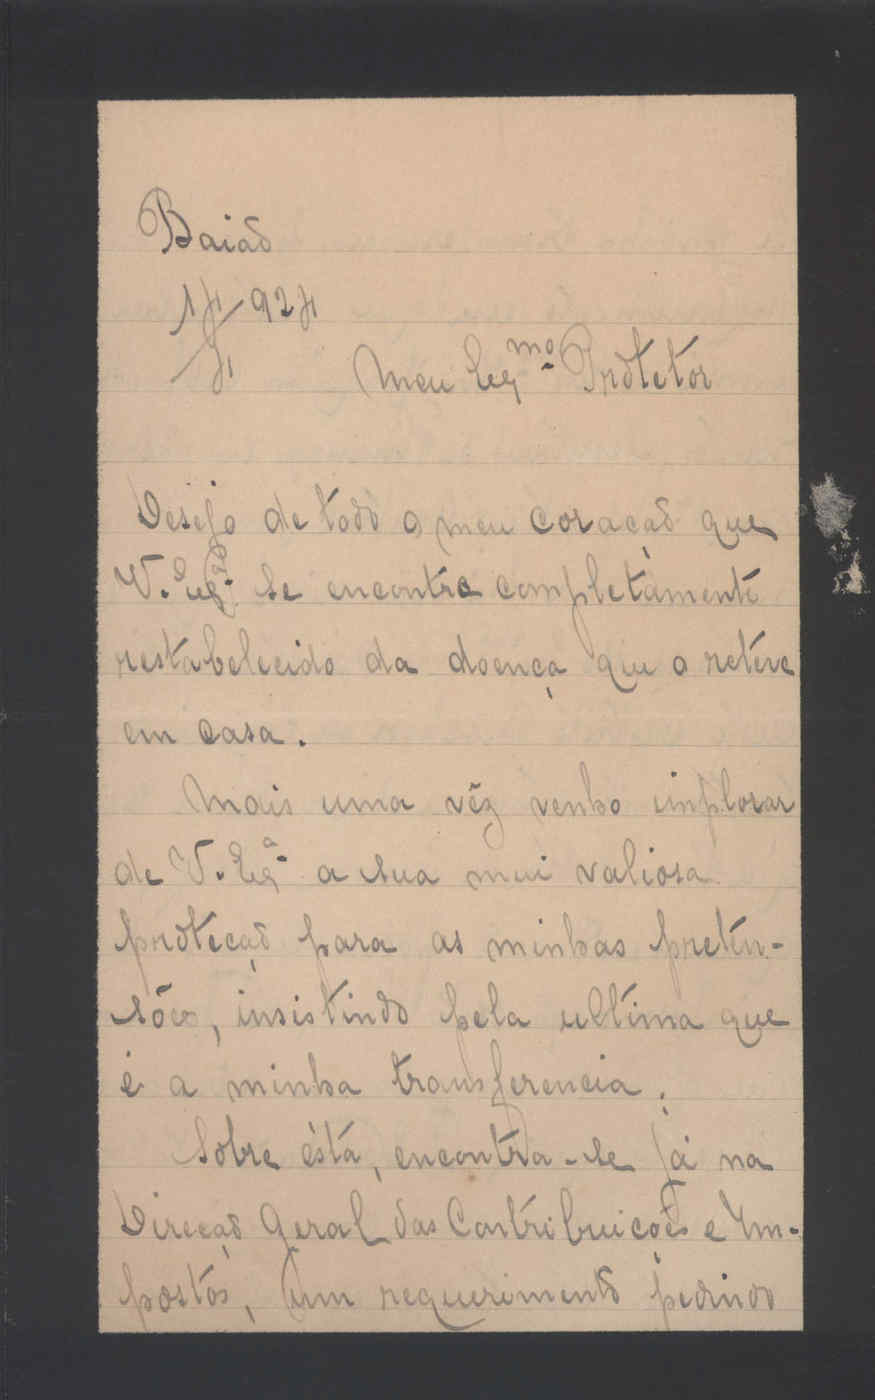 Baião
14/4 924
Meu Exmo. Protetor
Desejo de todo o meu coração que
V. Exª. se encontre completamente
restabelecido da doença que o reteve
em casa.
Mais uma vêz venho implorar
de V. Exª. a sua mui valiosa
proteção para as minhas preten-
sões, insistindo pela ultima que
é a minha transferencia.
Sobre ésta, encontra-se já na
Direcção Geral das Contribuições e Im-
postos, um requerimento pedindo